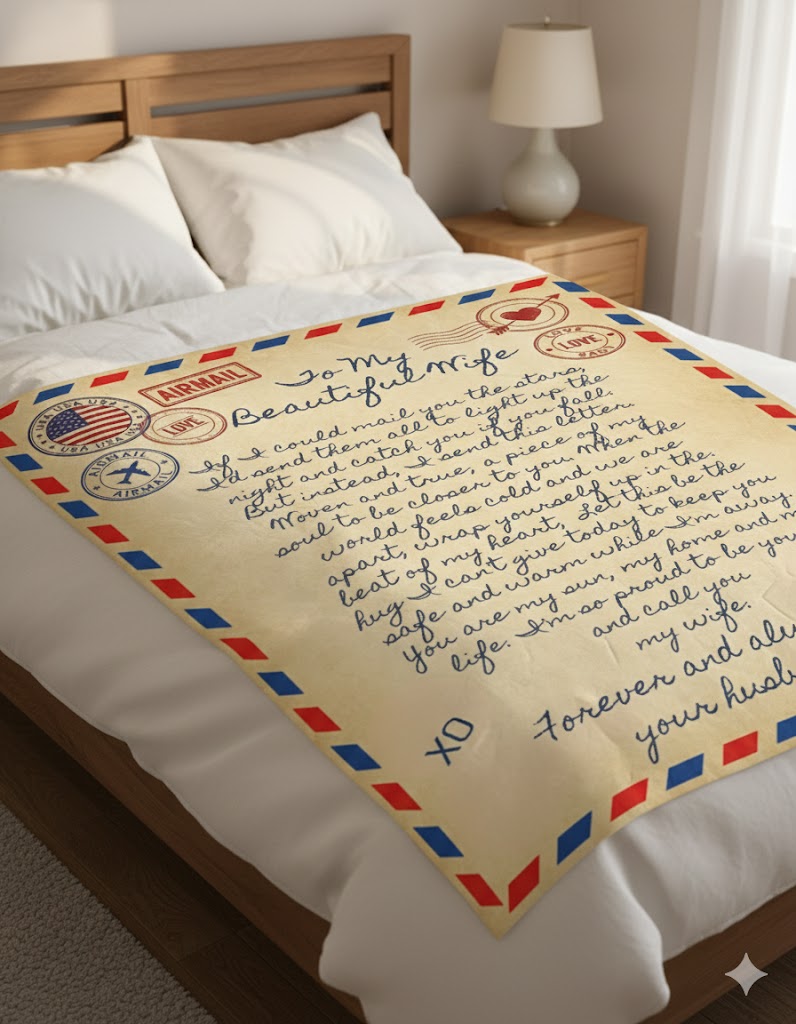 AIRMAIL
USA USA USA
USA USA
LOVE
AIRMAIL
AIRMAIL
LOVE
LOVE
To My
Beautiful Wife
If I could mail you the stars,
I'd send them all to light up the
night and catch you if you fall.
But instead, I send this letter.
Woven and true, a piece of my
soul to be closer to you. When the
world feels cold and we are
apart, wrap yourself up in the.
beat of my heart, Let this be the
hug I can't give today to keep you
safe and warm while I'm away.
You are my sun, my home and m
life. I'm so proud to be you
and call you
my wife.
Forever and alw
your husb
XO